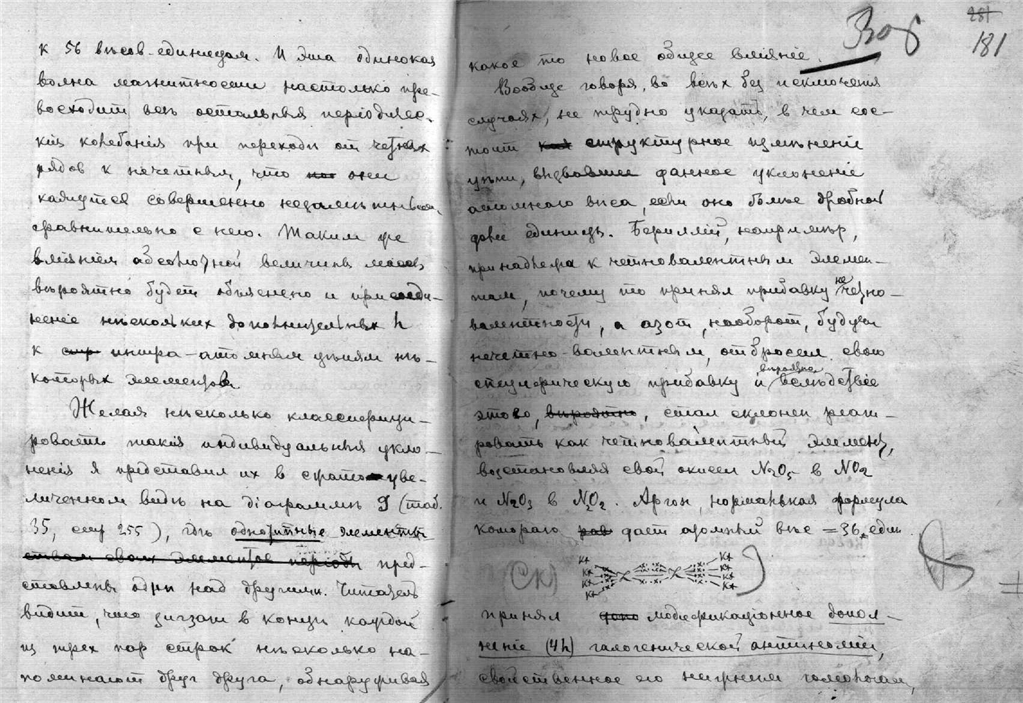 к 56 вѣсов. единицам. И эта одинокая
волна магнитности настолько пре-
восходит всѣ остальныя періодиче-
кія колебанія при переходѣ от четных
рядов к нечетным, что они
кажутся совершенно незамѣтными
сравнительно с нею. Таким же
вліянiем абсолютной величины массы
вѣроятно будет объяснено и присоеди-
неніе нѣскольких дополнительных h
к интра-атомным узлам нѣ-
которых элементов.
Желая нѣсколько классифици-
ровать такія индивидуальныя укло-
ненія я представил их в увe-
личенном видѣ на діаграммѣ 9 (таб.
35, стр 255), гдѣ однотипные элементы
ствам своих элементов періоды пред-
ставлены одни над другими. Читатель
видит, что зигзаги в концѣ каждой
из трех пар строк нѣсколько на-
поминают друг друга, обнаруживая
251
181
какое то новое общее вліяніе.
Вообще говоря, во всѣх без исключенія
случаях, не трудно указать, в чем сос-
тоит структурное измѣненіе
вызвавшее данное уклоненіе
атомнаго вѣса, если оно болѣе дробной
доли единицы. Бериллій, напримѣр,
принадлежа к четновалентным элемен-
там, почему то принял прибавку нечетно-
валентности, а азот, наоборот, будучи
нечетно-валентным, отбросил свою
специфическую прибавку и вѣроятно вслѣдствіе
этого, вѣроятно, стал склонен реаги-
ровать как четновалентный элемент,
возстановляя свой окисел N2O5 в NO2
и N2O3 в NO2. Аргон, нормальная формула
котораго дает атомный вѣс = 36 един
(К)
К+ К+
К+ К+
К+ К+
К+ К+
принял модификаціонное допол-
неніе (4h) галогенической антиномии,
свойственное его нижним гомологам,